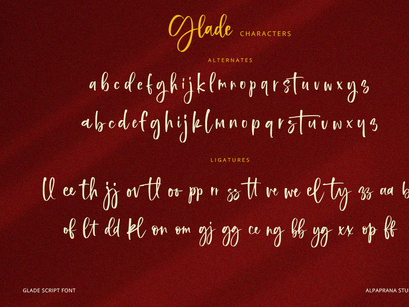 Glade CHARACTERS
ALTERNATES
a b c d e f g h i j k l m n o p q r s t u v w x y z
a b c d e f g h i j k l m n o p q r s t u v w x y z
LIGATURES
ll ee th jj ov tl oo pp rr ss tt ve we el ty zz aa b
of lt dd kl on om gj gg ce ng bb yg xx op ff
GLADE SCRIPT FONT
ALPAPRANA STU